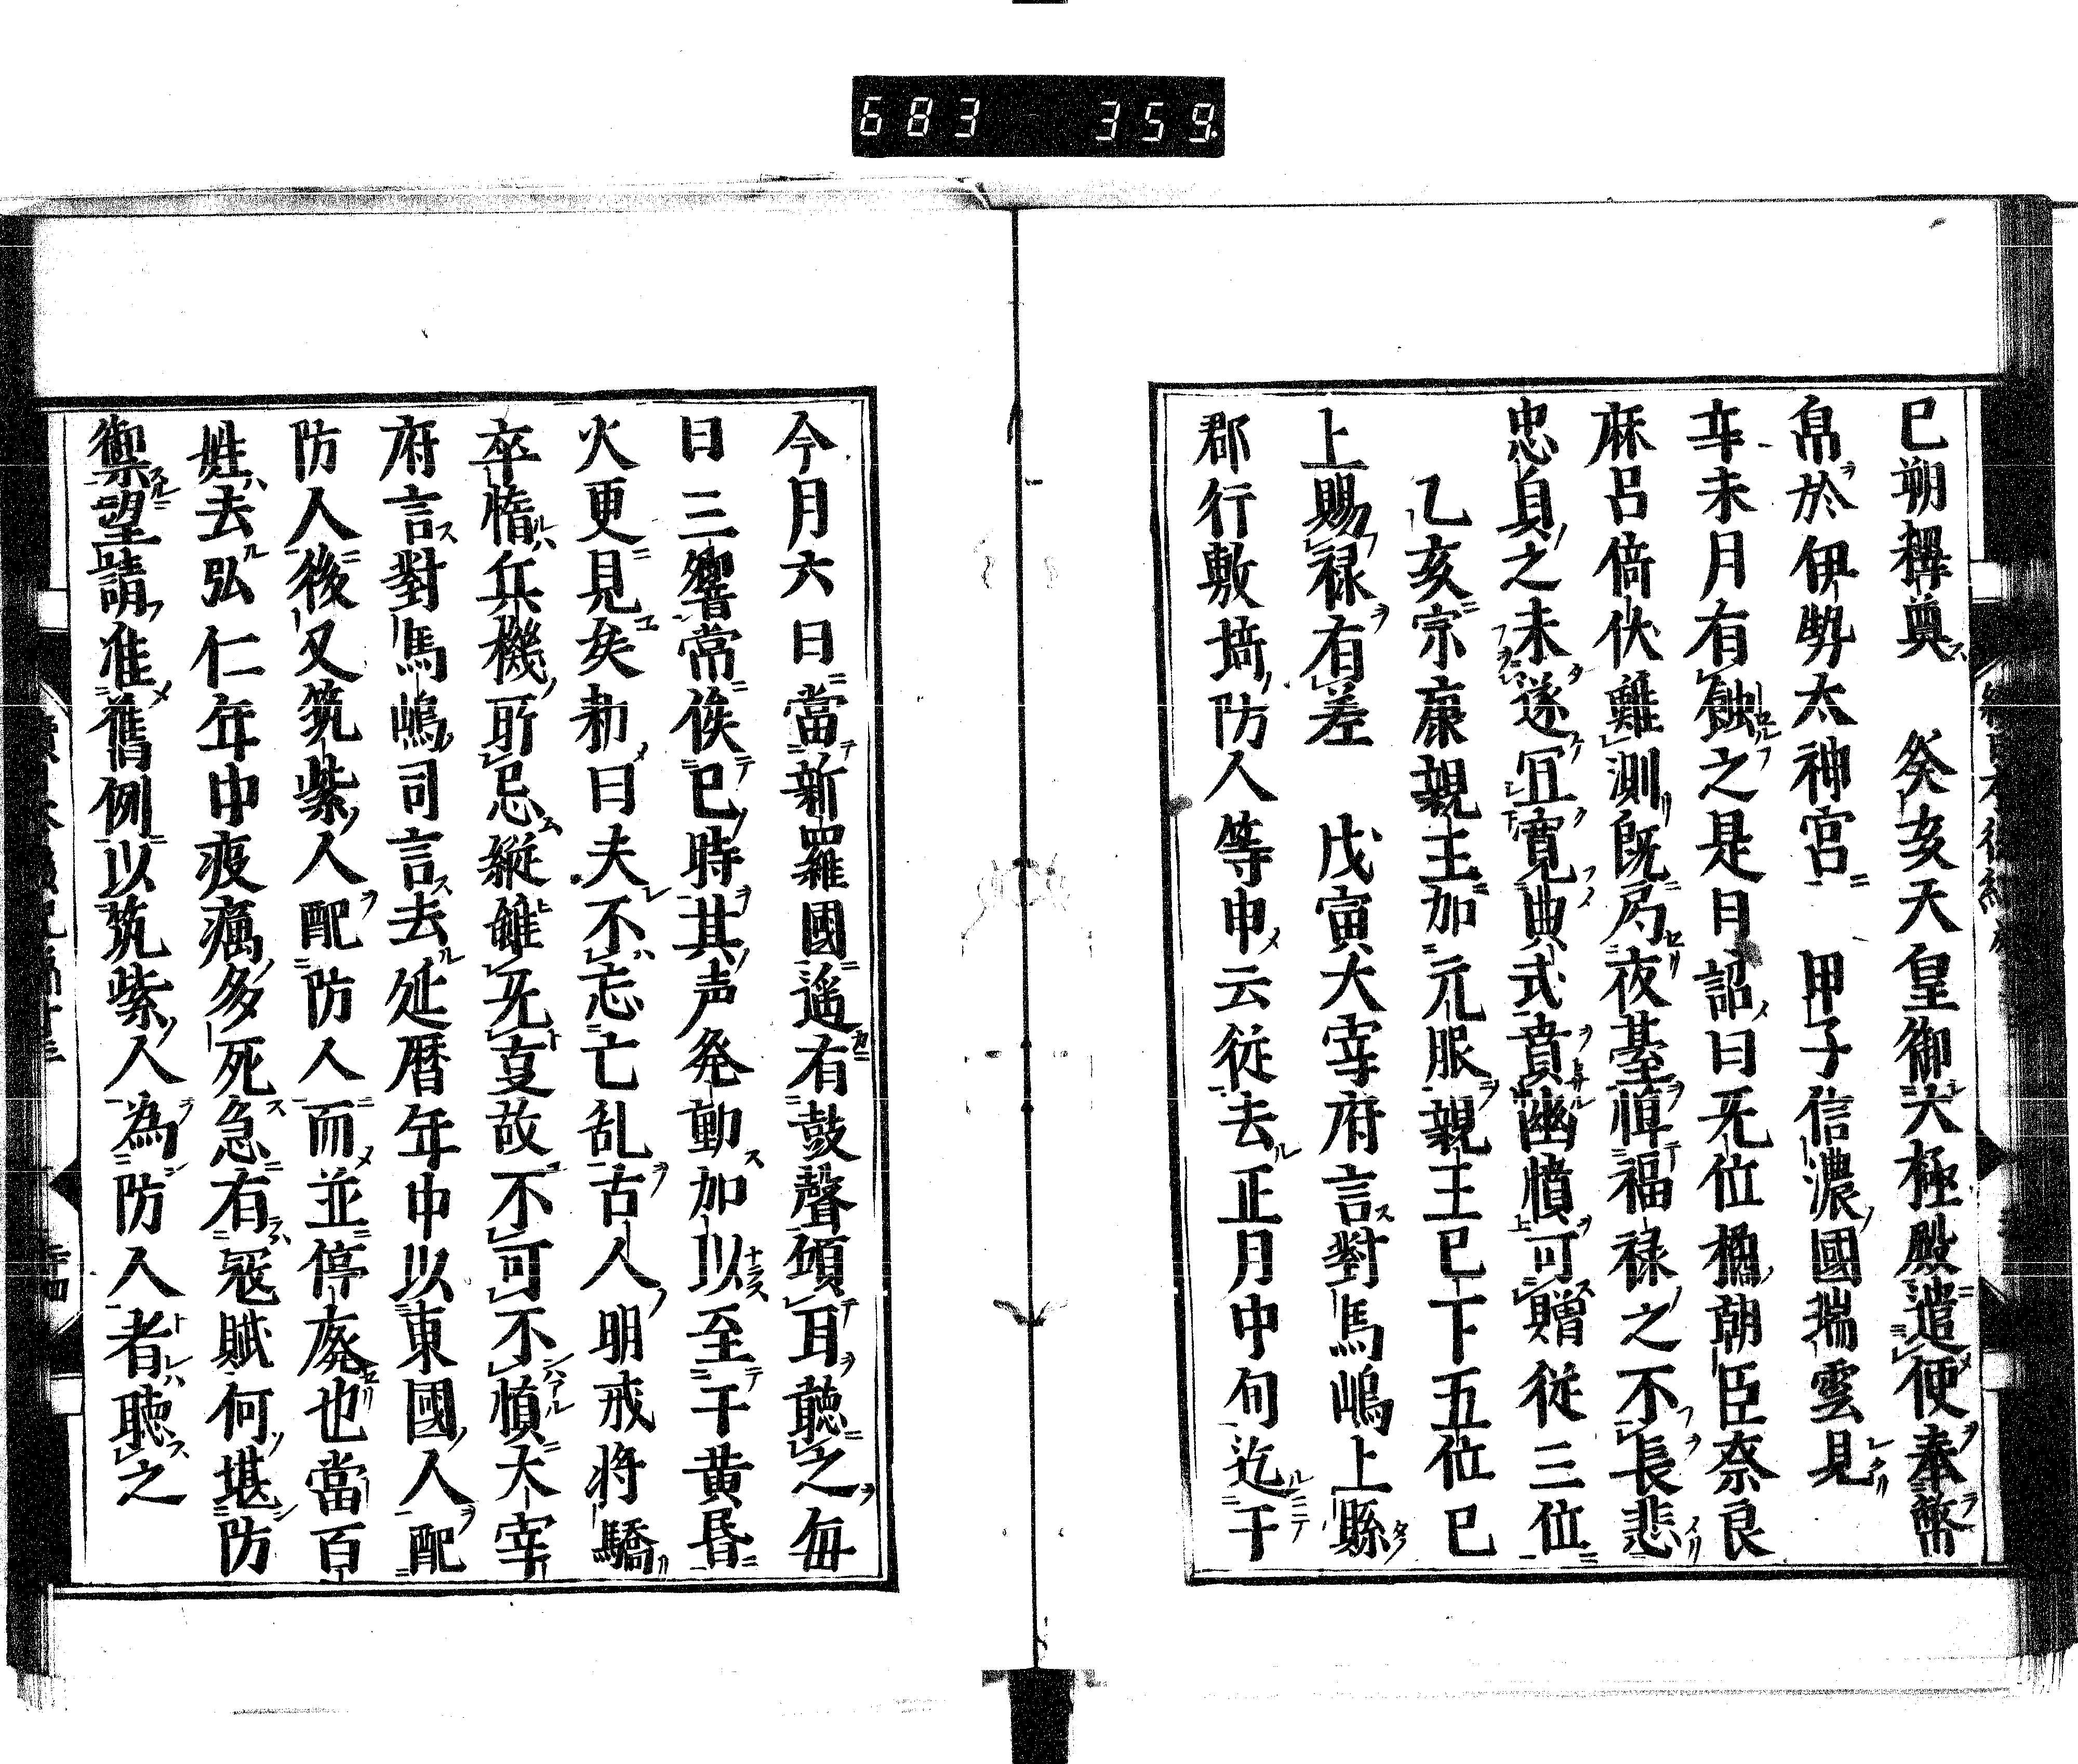 683 359
巳朔釋奠 癸亥天皇御大極殿遣使奉幣
帛於伊勢太神宮 甲子信濃國揣雲見
辛未月有蝕之是月詔曰旡位橘朝臣奈良
麻呂倚伏難測既扃夜臺悼福禄之不長悲
忠貞之未遂冝寛典式賁幽憤可贈従三位
乙亥宗康親王加元服親王已下五位已
上賜禄有差 戊寅大宰府言對馬嶋上縣
郡行敷埼防人等申云従去正月中旬迄于
今月六日當新羅國遥有鼓聲傾耳聴之毎
日三響常俟巳時其声発動加以至于黄昏
火更見矣勅曰夫不忘亡乱古人明戒将驕
卒惰兵機所忌縦雖旡㕝故不可不慎大宰
府言對馬嶋司言去延暦年中以東國人配
防人後又筑紫人配防人而並停廃也當百
姓去弘仁年中疫癘多死急有冦賊何堪防
禦望請准舊例以筑紫人為防人者聴之